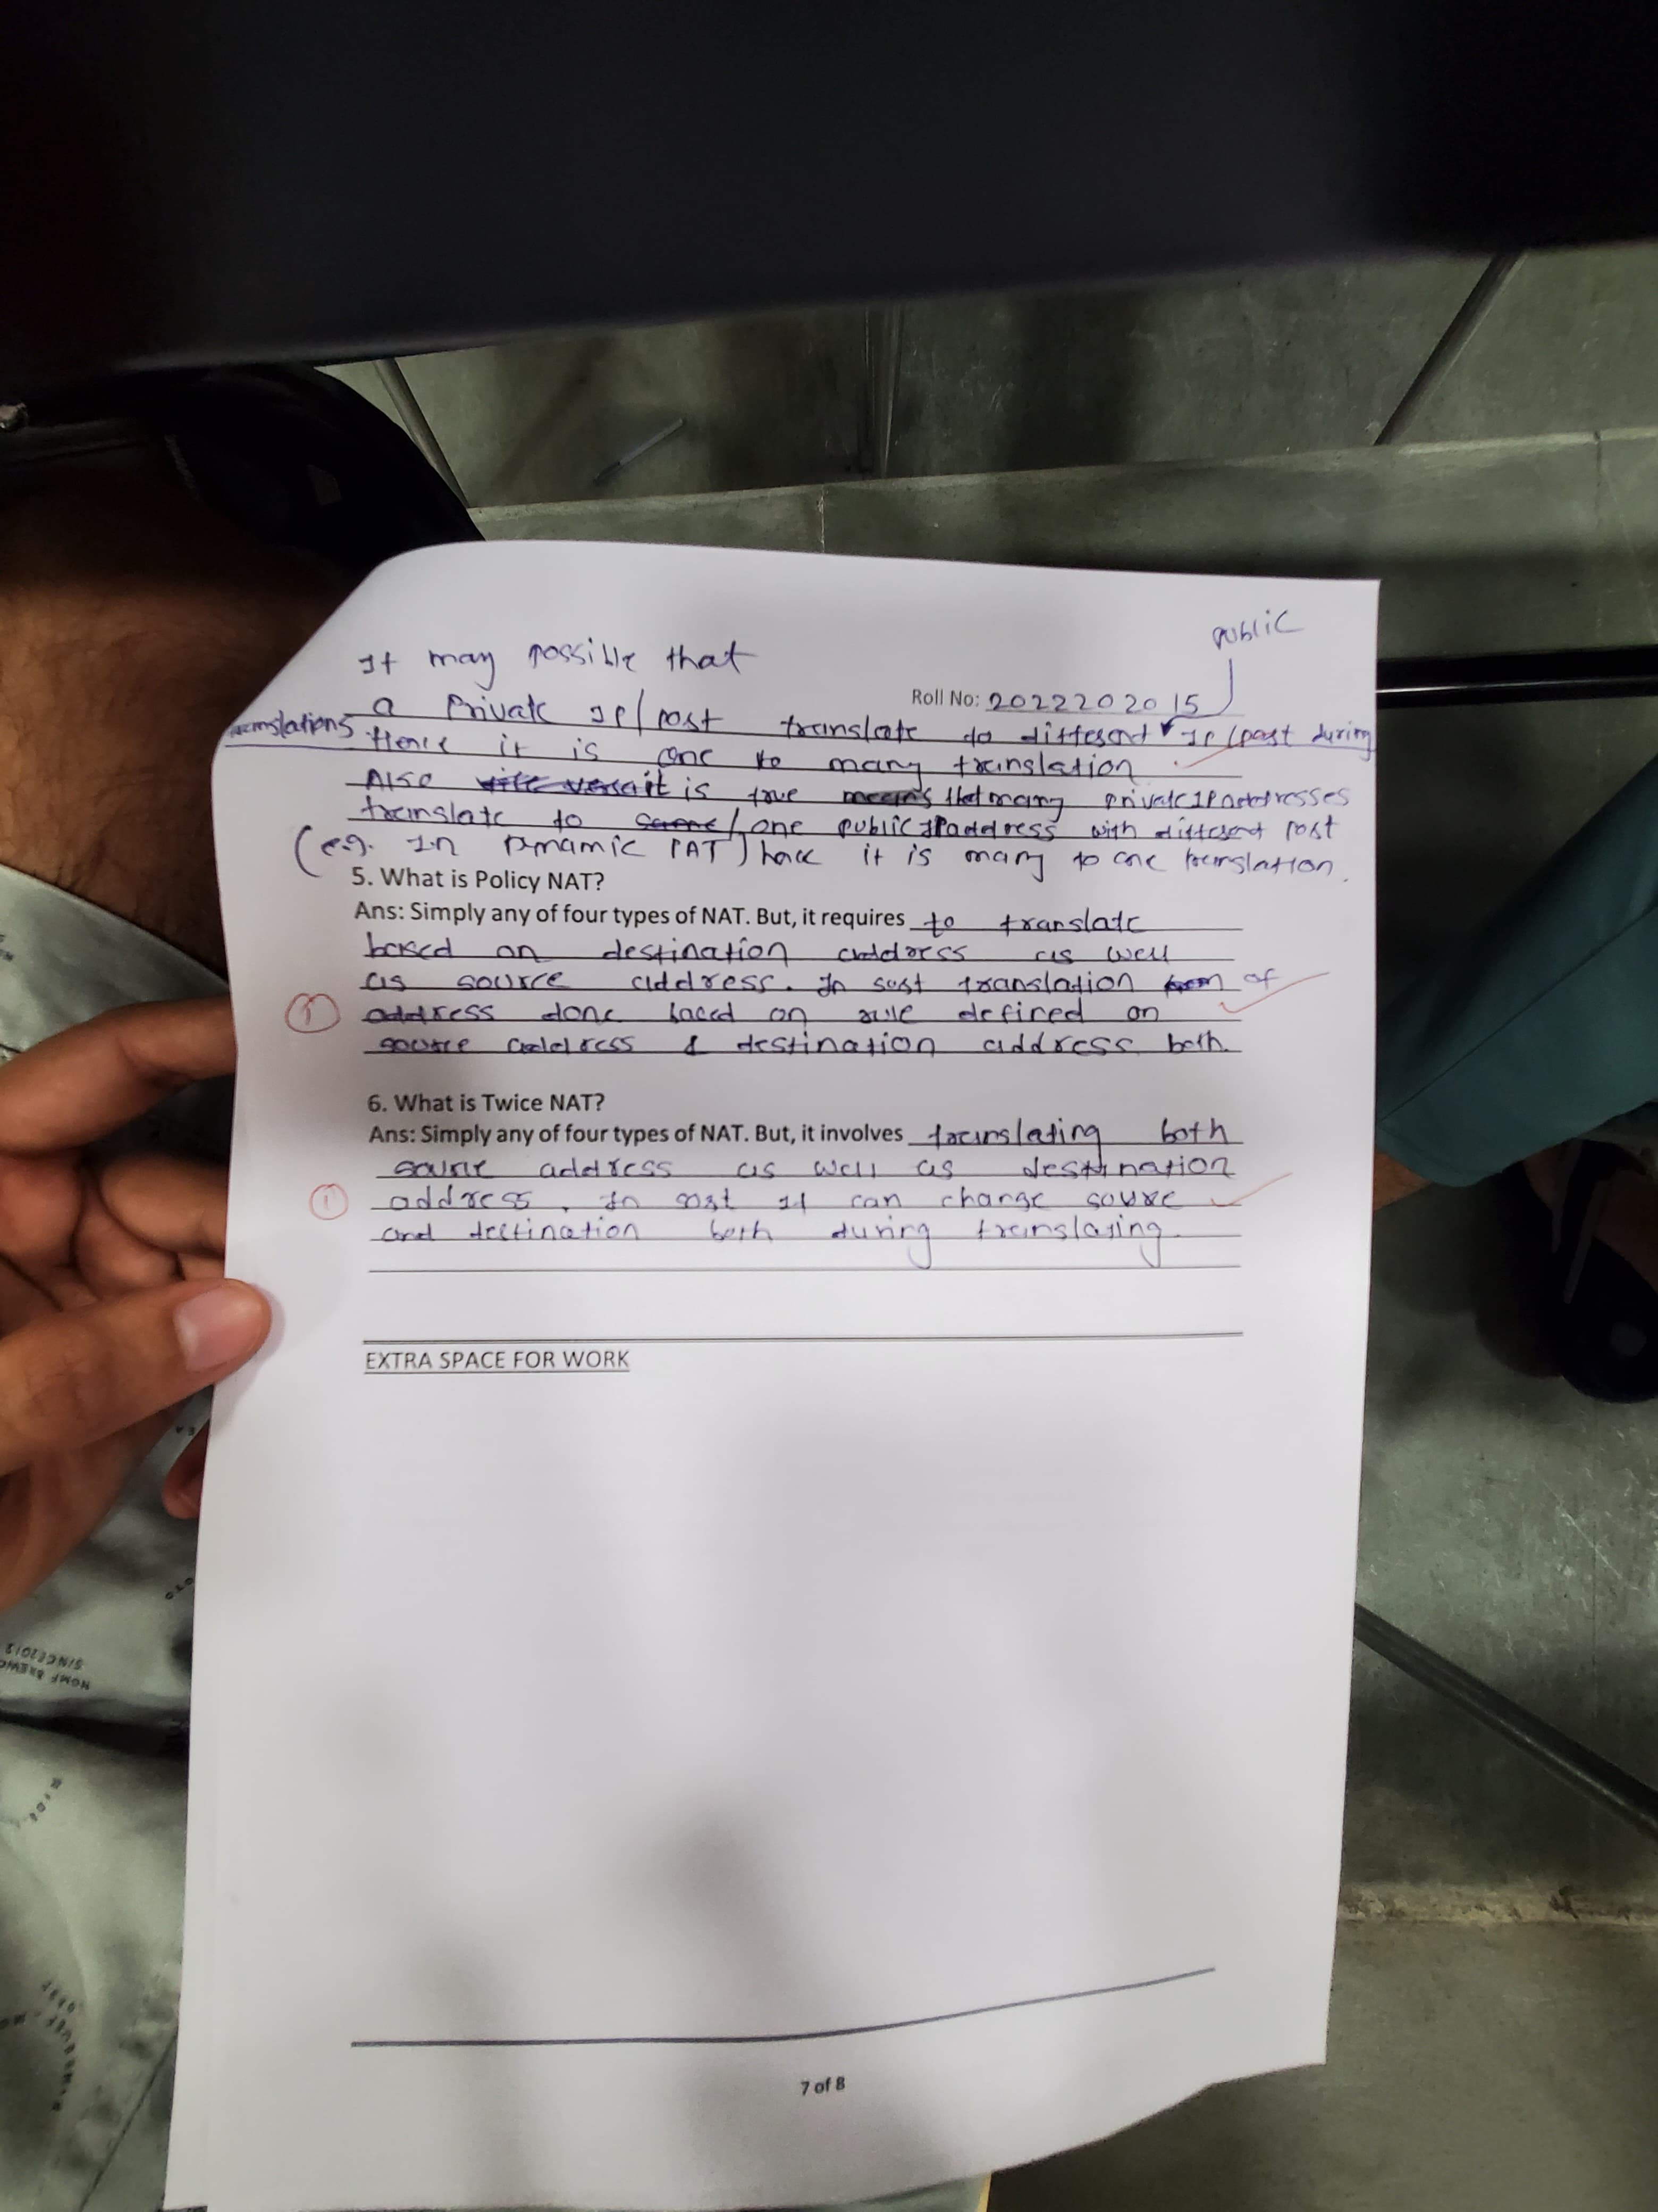 public
It may possible that
Roll No: 2022202015
a Private IP/port translate to different IP/port during
translations Hence it is one to many translation
Also vice versa it is true means that many private IP addresses
translate to same/one public IP address with different port
(e.g. In Dynamic PAT) hence it is many to one translation.
5. What is Policy NAT?
Ans: Simply any of four types of NAT. But, it requires to translate
based on destination address as well
as source address. In sort translation of
address done based on rule defined on
source address & destination address both.
6. What is Twice NAT?
Ans: Simply any of four types of NAT. But, it involves translating both
source address as well as destination
1 address. In sort It can change source
and destination both during translating.
EXTRA SPACE FOR WORK
7 of 8
SINCE2012